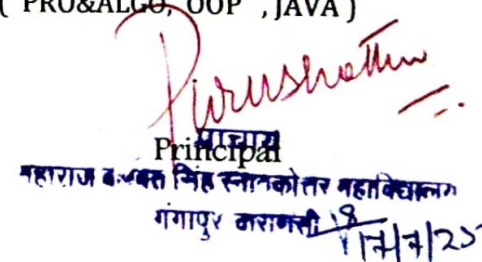 ( PRO&ALGO, OOP , JAVA )
Purushottam
प्राचार्य
Principal
महाराज बलवन्त सिंह स्नातकोत्तर महाविद्यालय
गंगापुर वाराणसी
17/7/25